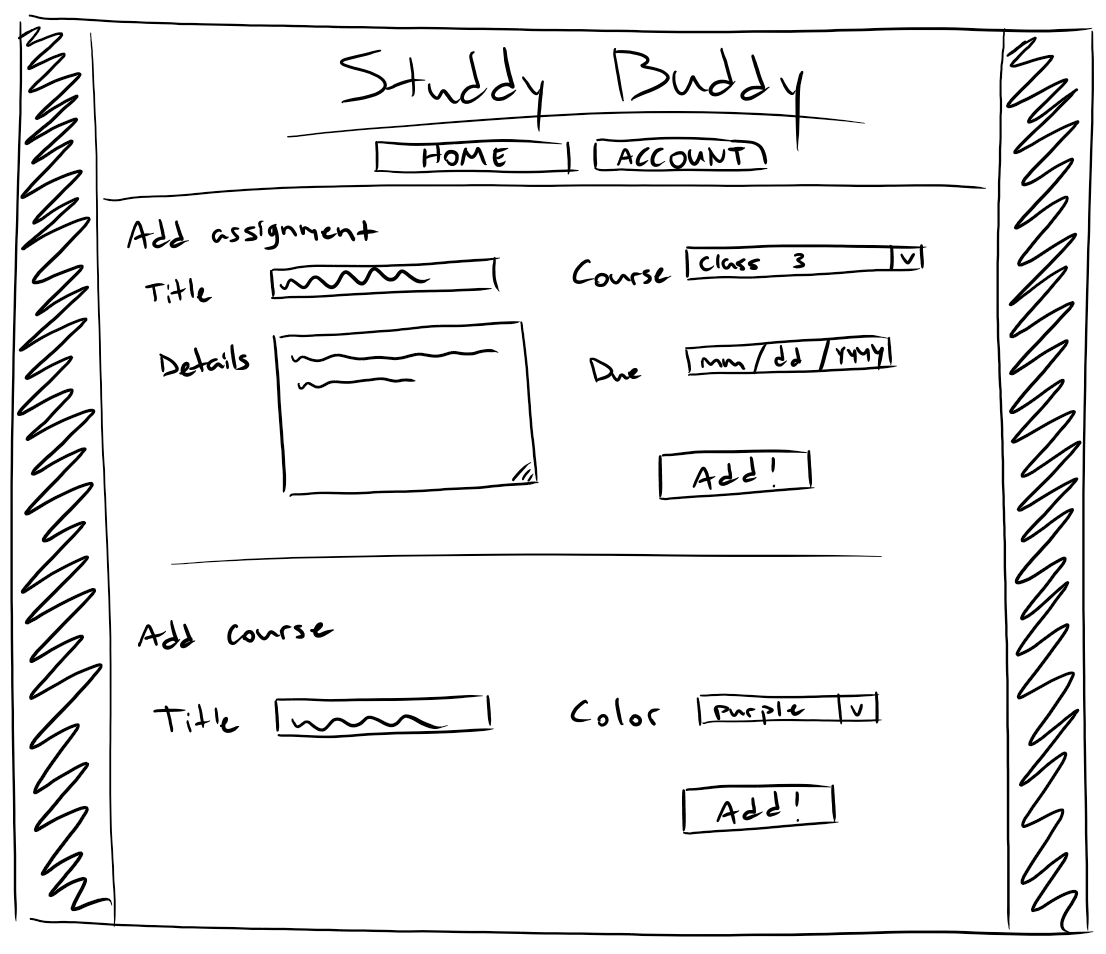 Studdy Buddy
HOME ACCOUNT
Add assignment
Title
Course Class 3 v
Details
Due mm/dd/yyyy
Add!
Add course
Title
Color purple v
Add!